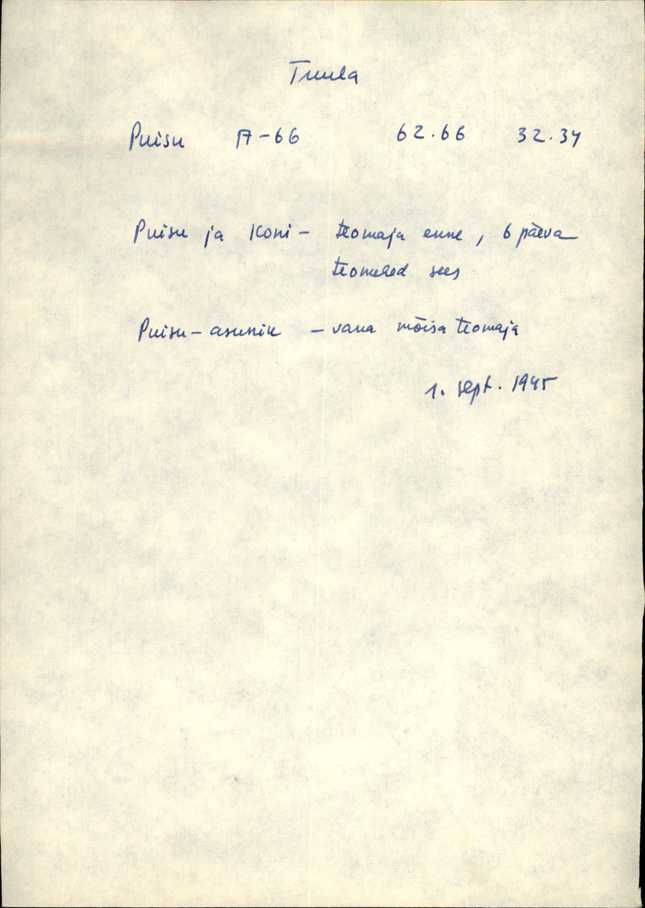 Tuula
Puisu A-66 62.66 32.34
Puisu ja Koni- teomaja enne, 6 päeva
teomehed sees
Puisu-asunik - vana mõisa teomaja
1. sept. 1945